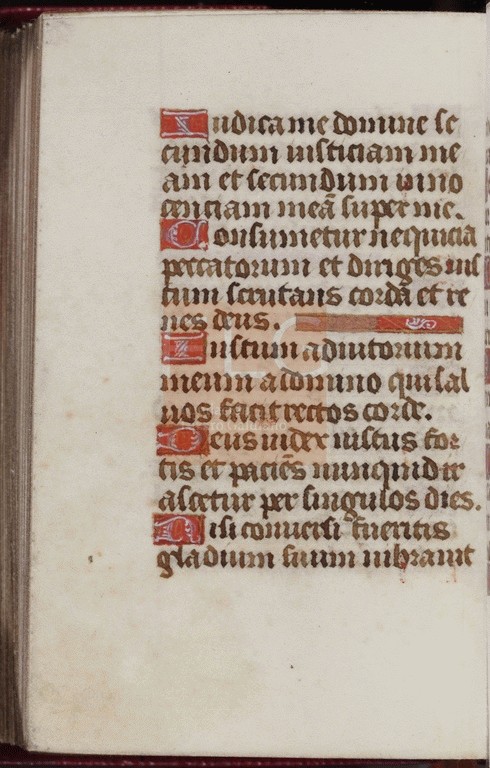 Iudica me domine se
cundum iusticiam me
am et secundum inno
cenciam meā super me.
Consumetur nequicia
peccatorum et diriges ius
tum scrutans corda et re
nes deus.
Iustum adiutorium
meum a domino qui sal
uos facit rectos corde.
Deus iudex iustus for
tis et paciēs nunquid ir
ascetur per singulos dies.
Nisi conuersi fueritis
gladium suum uibrauit